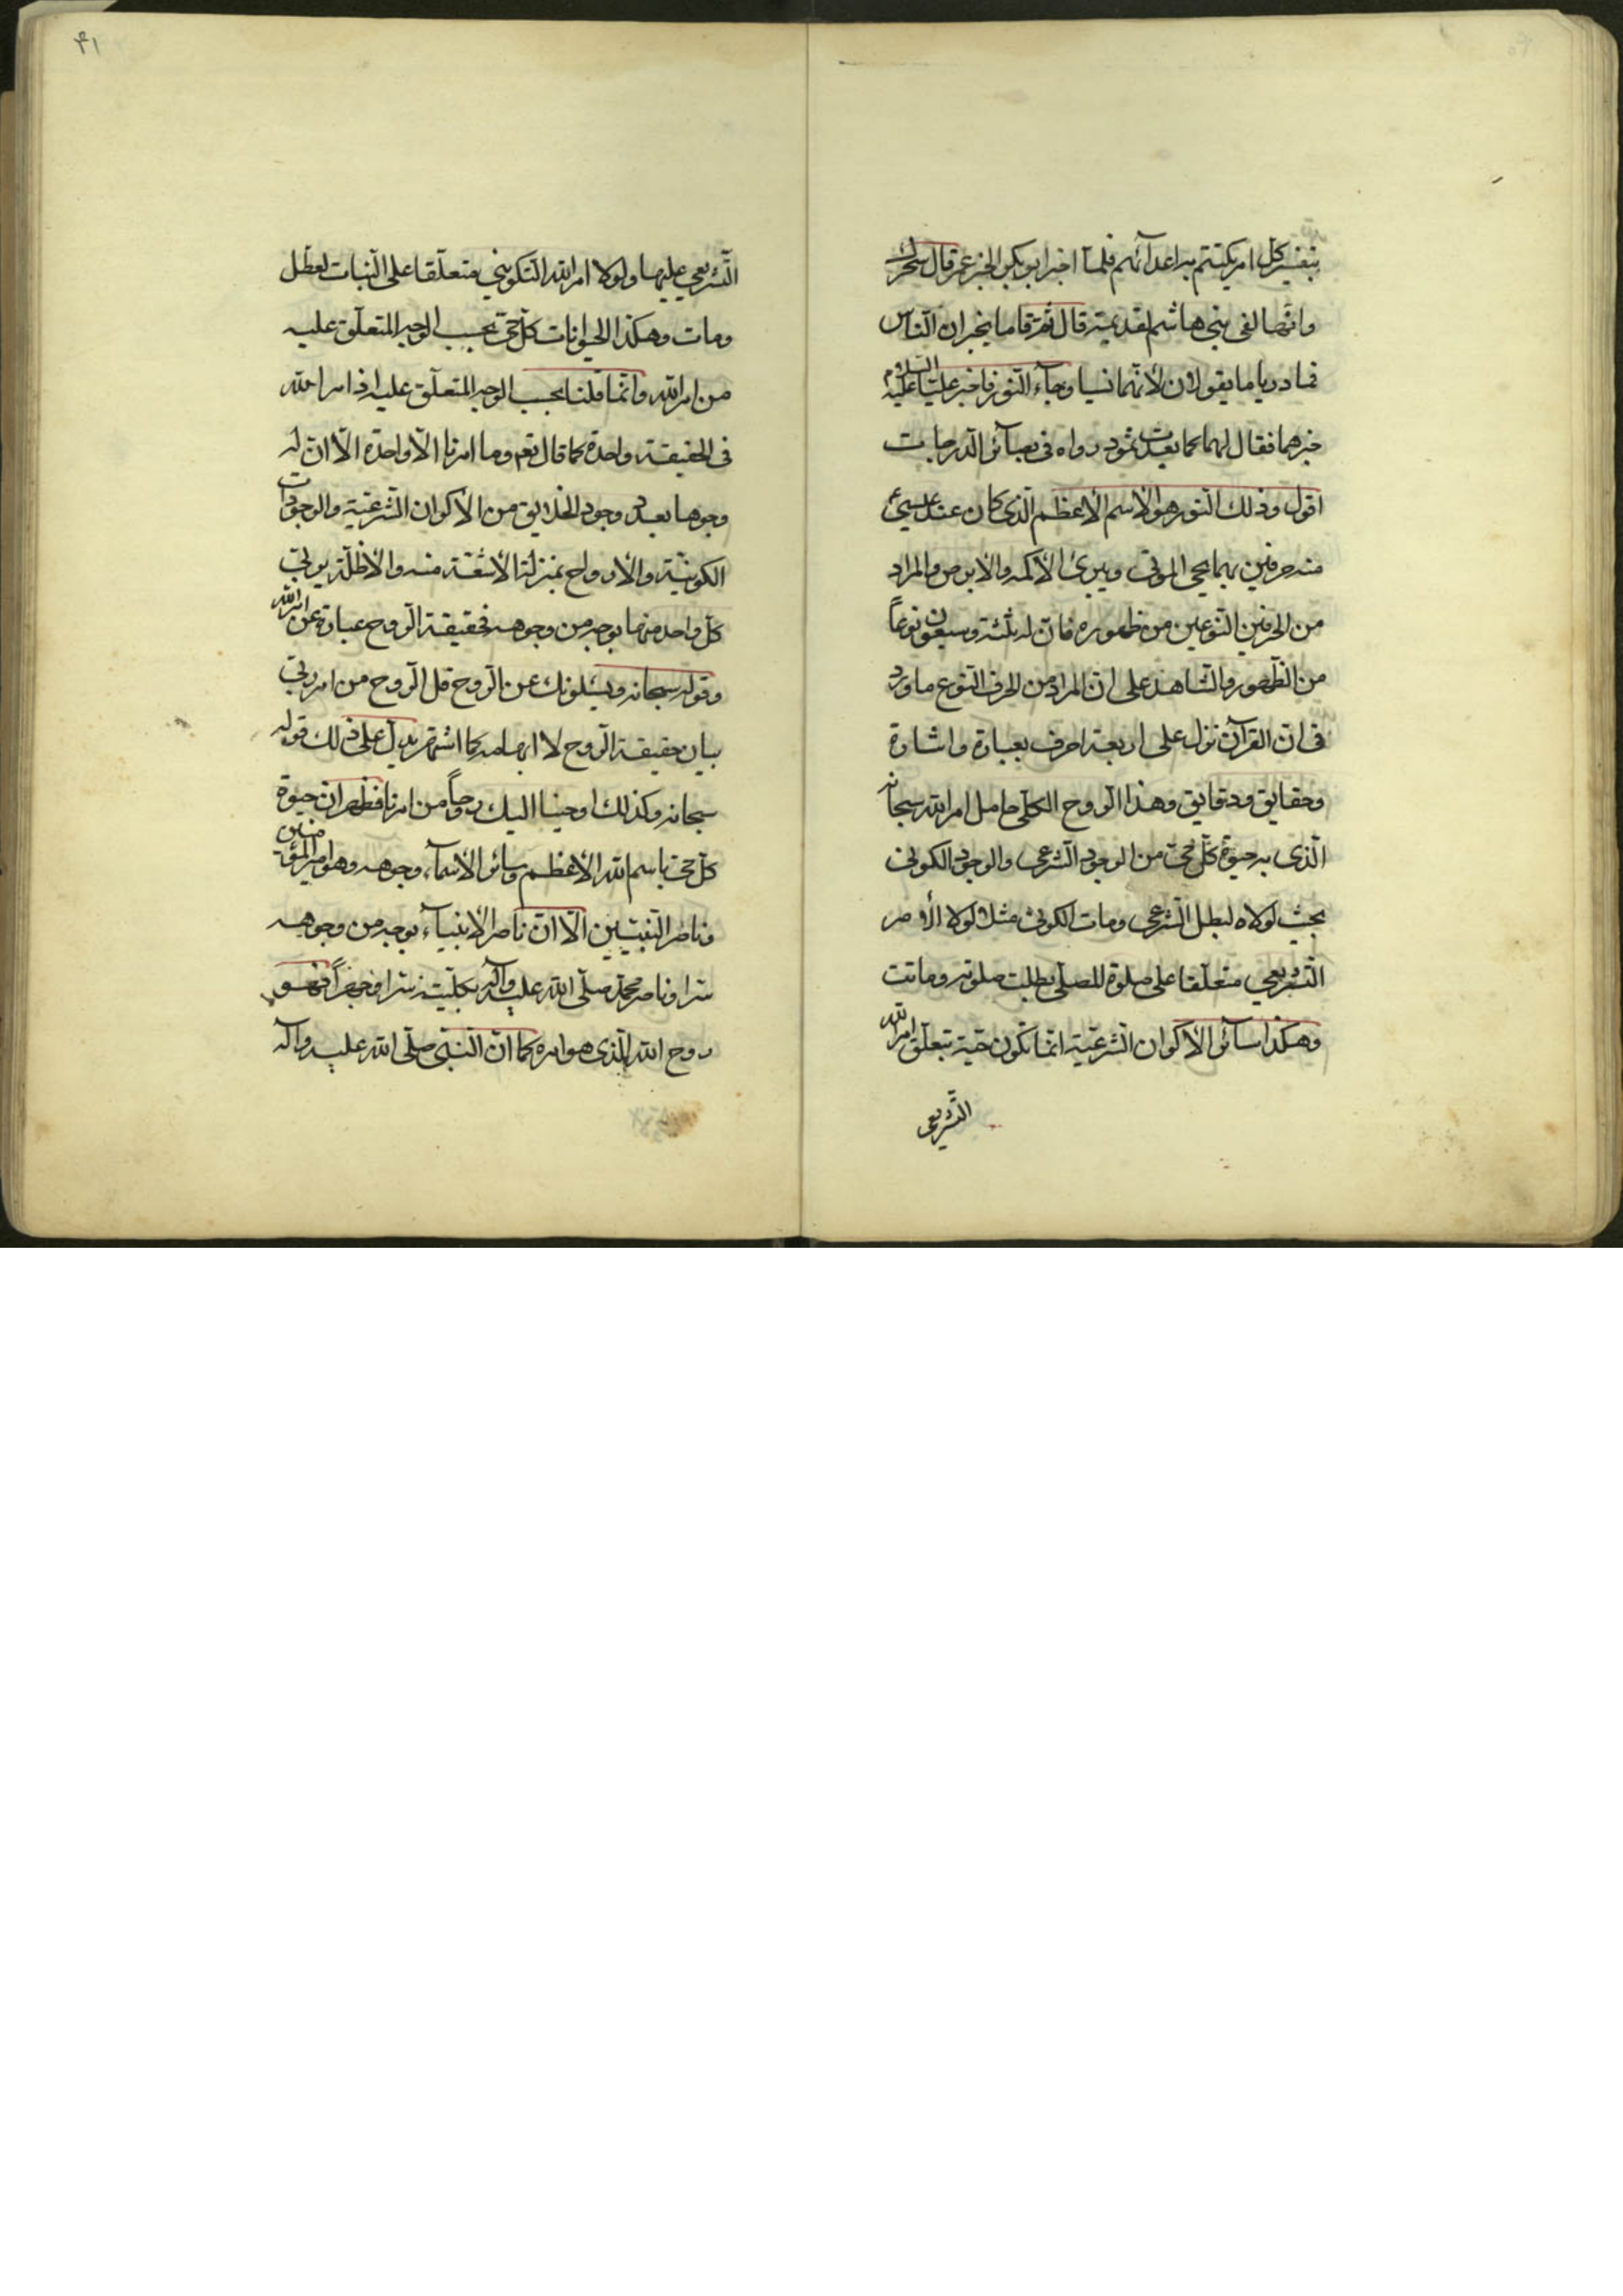 بتفسير كل امر يكتتم به اعدائهم فلما اخبر ابو بكر الخبر عمر قال سحران
وانها لفى بنى هاشم لقديمة قال ثم قاما يخبران الناس
فما دريا ما يقولان لانهما نسيا وجاء النور فاخبر عليا عليه السلام
خبرهما فقال لهما كما بعدت ثمود رواه فى بصائر الدرجات
اقول وذلك النور هو الاسم الاعظم الذى كان عند عيسى ع
منه حرفين بهما يحيى الموتى ويبرئ الاكمه والابرص والمراد
من الحرفين النوعين من ظهوره فان له ثلثة وسبعون نوعاً
من الظهور والشاهد على ان المراد من الحرف النوع ما ورد
فى ان القرآن نزل على اربعة احرف بعبارة واشارة
وحقايق ودقايق وهذا الروح الكلى حامل امر الله سبحانه
الذى به حيوة كل حى من الوجود الشرعى والوجود الكونى
بحيث لولاه لبطل الشرعى ومات الكونى مثلا لولا الامر
التشريعى متعلقا على صلوة المصلى بطلت صلوته وماتت
وهكذا سائر الاكوان الشرعية انما تكون حية بتعلق امر الله
التشريعى
۴۱
التشريعى عليها ولولا امر الله التكوينى متعلقا على النبات لعطل
ومات وهكذا الحيوانات كل حى بحسب الوجه المتعلق عليه
من امر الله وانما قلنا بحسب الوجه المتعلق عليه اذ امر الله
فى الحقيقة واحدة كما قال تعم وما امرنا الا واحدة الا ان له
وجوها بعدد وجود الخلايق من الاكوان الشرعية والوجودات
الكونية والارواح بمنزلة الاشعة منه والاظلة يربى
كل واحد منها بوجه من وجوهه فحقيقة الروح عبارة عن امر الله
وقوله سبحانه ويسئلونك عن الروح قل الروح من امر ربى
بيان حقيقة الروح لا ابهامه كما اشتهر يدل على ذلك قوله
سبحانه وكذلك اوحينا اليك روحاً من امرنا فظهر ان حيوة
كل حى باسم الله الاعظم وسائر الاسماء وجوهه وهو امير المؤمنين
وناصر النبيين الا ان ناصر الانبياء بوجه من وجوهه
سرا وناصر محمد صلى الله عليه وآله بكليته سرا وجهراً فهو
روح الله الذى هو امره كما ان النبى صلى الله عليه وآله